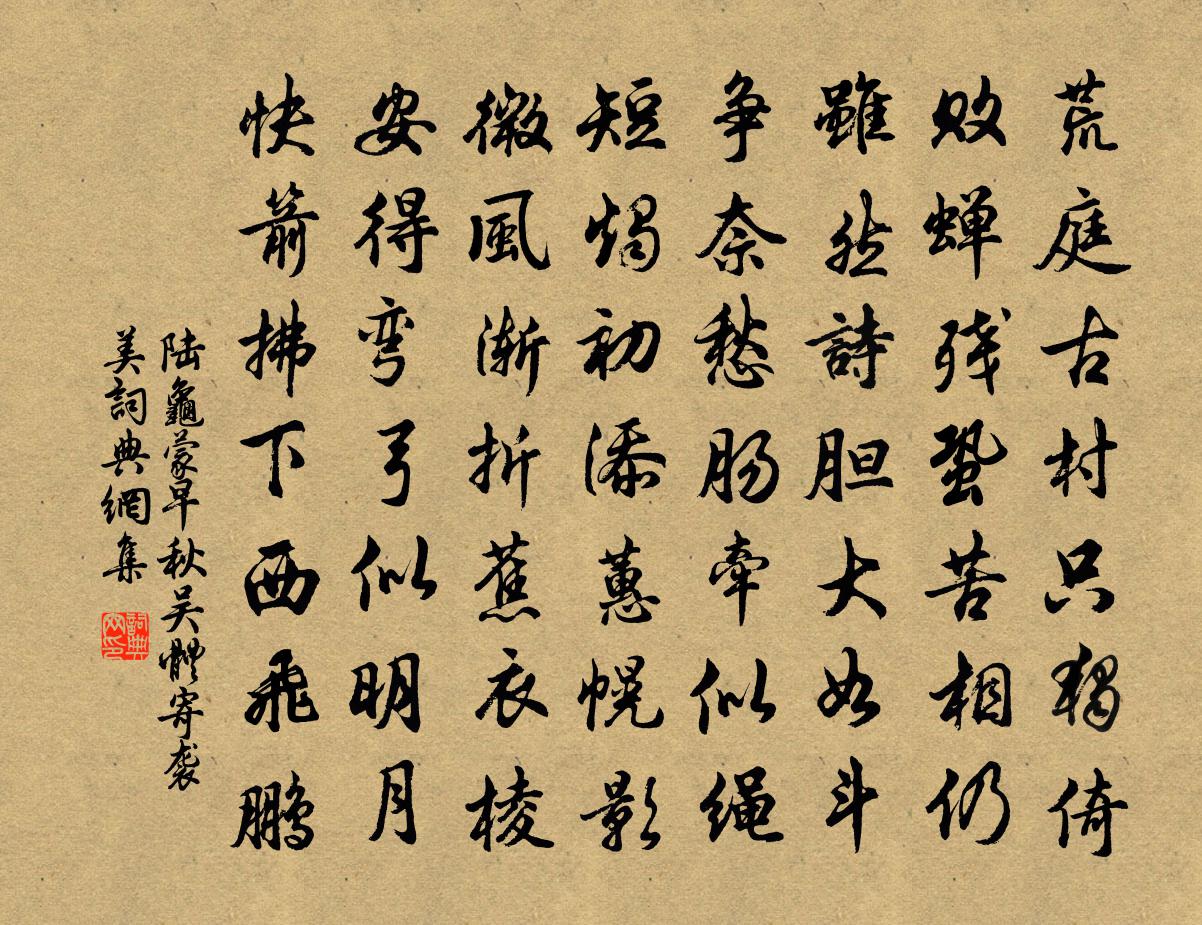 荒庭古村只獨倚
敗蟬残蛩苦相仍
雖然詩胆大如斗
争奈愁肠牽似绳
短燭初添蕙幌影
微風漸折蕉衣棱
安得弯弓似明月
快箭拂下西飛鵬
陆龜蒙早秋吴體寄袭
美詞典網集
詞典网印